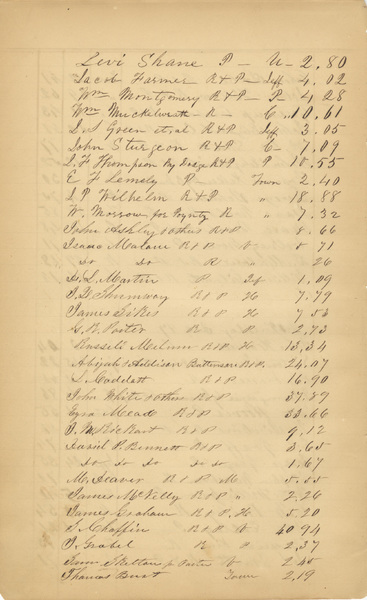 Levi Shane P — U — 2.80
Jacob Farmer R & P — Jeff 4.02
Wm Montgomery R & P — P — 4.28
Wm Muckelwrath — R — C 10.61
Green et al R & P Jeff 3.05
John Sturgeon R & P C — 7.09
Thompson By R & P P 10.55
E F Lemsly P — Town 2.40
Wilhelm R & P " 18.88
W. Morrow for Poyntz R " 7.32
John Ashby & others R & P 8.66
Isaac Malane R & P V 71
Do Do R " 26
Martin P Jef 1.09
Shumway R & P H 7.79
James Sikes R & P H
Porter R P 2.73
Russell R & P H 13.34
Abijah & Addison Batterson R & P. 24.07
R & P 16.90
John White & others R & P 37.29
Ezra Mead R & P 33.66
R & P 9.12
P. Bennett R & P 3.65
Do Do Do Do Do 1.67
M. Deaver R & P M
James McKelly R & P " 2.26
James Graham R & P. H 5.20
Chaffin R & P V 40 94
Grabel R P 2.37
Skelton for V 2.45
Thomas Burst Town 2.19